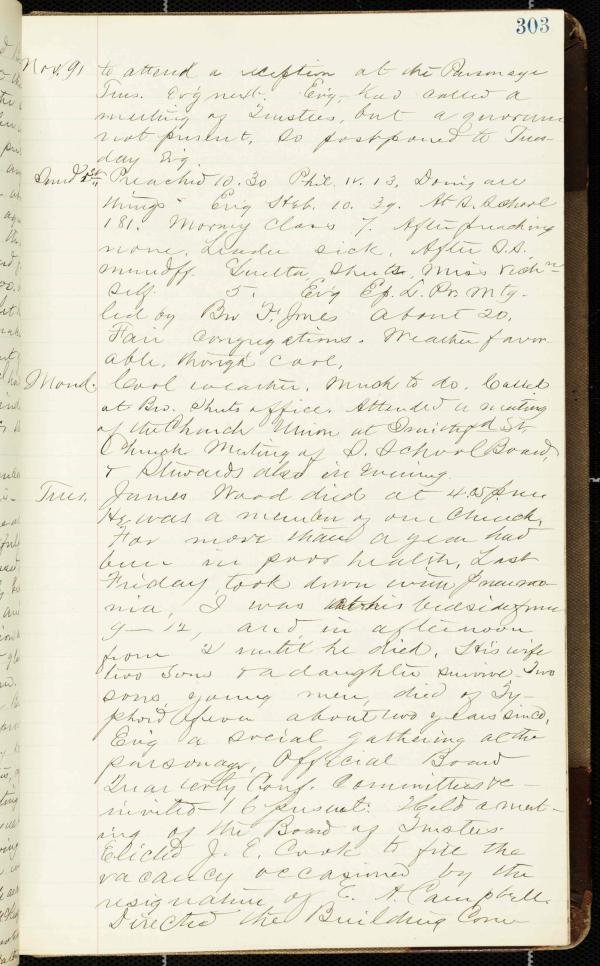 303
Nov. 91 to attend a reception at the Parsonage
Tues. Ev'g next. Ev'g, had called a
meeting of Trustees, but a quorum
not present, so postponed to Tues-
day Ev'g.
Sund 1st Preached 10.30 Phil. 4. 13. Doing all
things" Evg Heb. 10. 39. At S. School
181. Morning Class 7. After preaching
none, Leader sick. After S.S.
Luella Shutts, Miss
Self. 5. Ev'g Ep. L. Pr. Mtg.
led by Bro F. Jones About 20.
Fair congregations. Weather favor-
able, though cool.
Mond. Cool weather. Much to do. Called
at Bro. Shuts office. Attended a meeting
of the Church Union at St.
Church Meeting of S. School Board,
& Stewards also in Evening.
Tues. James Wood died at 4.25 p.m.
He was a member of our Church.
For more than a year had
been in poor health. Last
Friday, took down with pneumo-
nia, I was at his bedside from
9 - 12, and in afternoon
from 2 until he died. His wife
two sons & a daughter survive - Two
sons, young men, died of Ty-
phoid fever about two years since.
Ev'g a social gathering at the
parsonage, Official Board
Quarterly Conf. Committees &c -
invited - 16 present. Held a meet-
ing of the Board of Trustees.
Elected J. E. Cook to fill the
vacancy occasioned by the
resignation of E. A. Campbell.
Directed the Building Com-